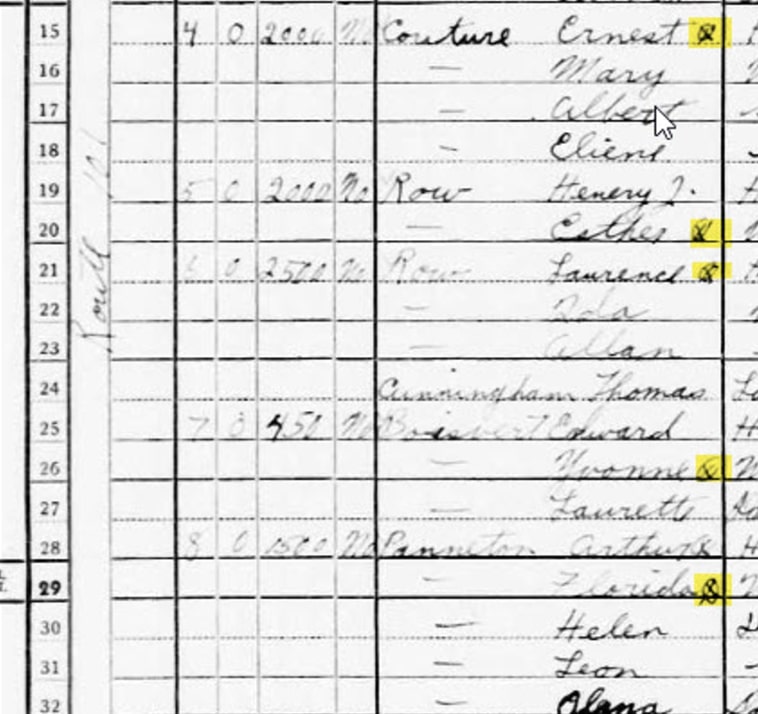 Route 101
15 4 O 2000 No Couture Ernest ⓧ H
16 — Mary
17 — Albert
18 — Eliene
19 5 O 2000 No Row Henery J. H
20 — Esther ⓧ
21 6 O 2500 No Row Laurence ⓧ H
22 — Iola
23 — Allan
24 Cunningham Thomas Lo
25 7 O 450 No Boisvert Edward H
26 — Yvonne ⓧ W
27 — Laurette Da
28 8 O 1500 No Panneton Arthur ⓧ H
29 — Florida ⓧ
30 — Helen
31 — Leon
32 —